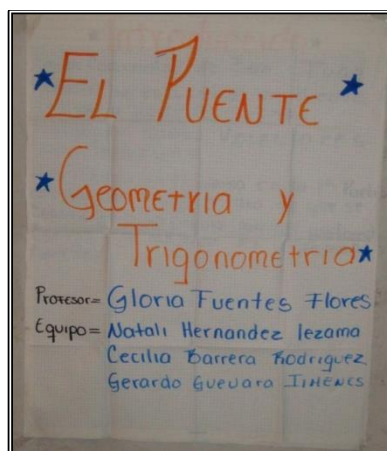 El Puente
Geometria y
Trigonometria
Profesor= Gloria Fuentes Flores
Equipo= Natali Hernandez lezama
Cecilia Barrera Rodriguez
Gerardo Guevara Jimenes